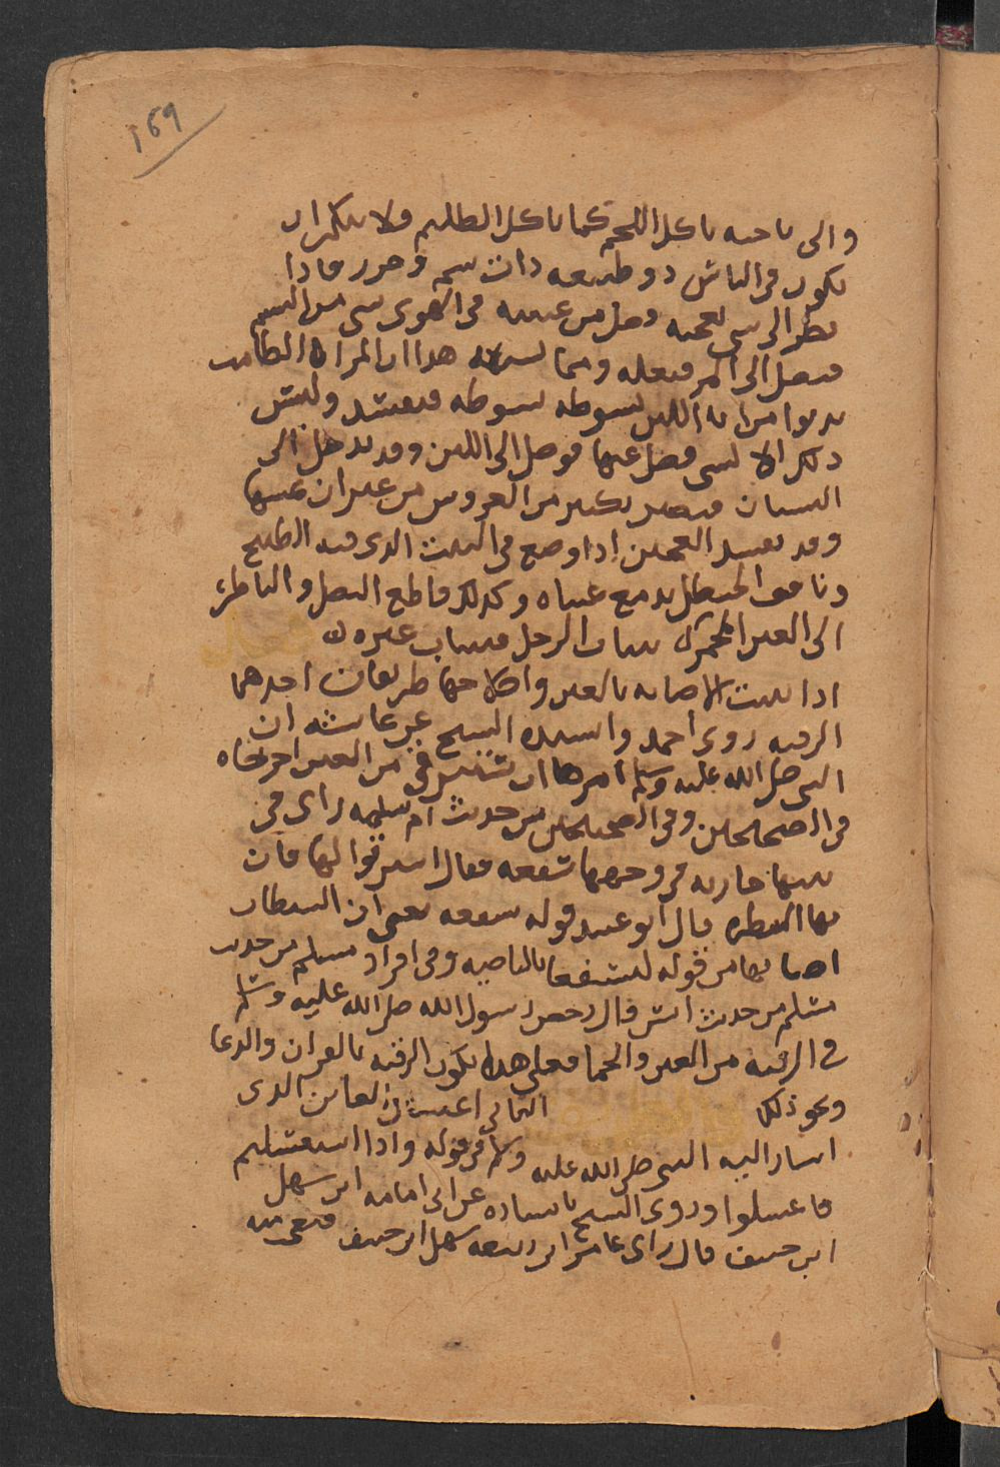 169
والى ناحيه ياكل اللحم كما ياكل الظليم ولا ينكر ان
يكون في الناس ذو طبيعه ذات سم وضرر فاذا
نظر الى شي يعجبه فصل من عينيه في الهوى شي من السم
فيصل الى المر فيعله ومما يشبه هذا ان المراه الطامث
تدنوا من انا اللبن لسوطه سوطه فيفسد وليس
ذلك الا لشي فصل عنها فوصل الى اللبن وقد تدخل الى
البستان فيضر بكثير من الغروس من غير ان تمسها
وقد يفسد العجين اذا وضع في البيت الذي فيه البطيخ
وناقف الحنظل تدمع عيناه وكذلك قاطع البصل والناظر
الى العين المحمره وقد يتثاب الرجل فيتثاب غيره
اذا ثبت الاصابه بالعين واصلاحها طريقان احدهما
الرقيه روى احمد واسنده الشيخ عن عايشه ان
النبي صلى الله عليه وسلم امرها ان تسترقي من العين اخرجاه
في الصحيحين وفي الصحيحين من حديث ام سلمه راى في
بيتها جاريه في وجهها سفعه فقال استرقوا لها فان
بها النظره قال ابو عبيد قوله سفعه يعني ان الشيطان
اصابها من قوله لنسفعا بالناصيه وفي افراد مسلم من حديث
مسلم من حديث انس قال رخص رسول الله صلى الله عليه وسلم
في الرقيه من العين والحما فعلى هذا يكون الرقيه بالقران والدعا
ونحو ذلك الثاني اغتسال العاين الذي
اشار اليه النبي صلى الله عليه وسلم في قوله واذا استغسلتم
فاغسلوا وروى الشيخ باسناده عن ابي امامه ابن سهل
ابن حنيف قال راى عامر ابن ربيعه سهل ابن حنيف